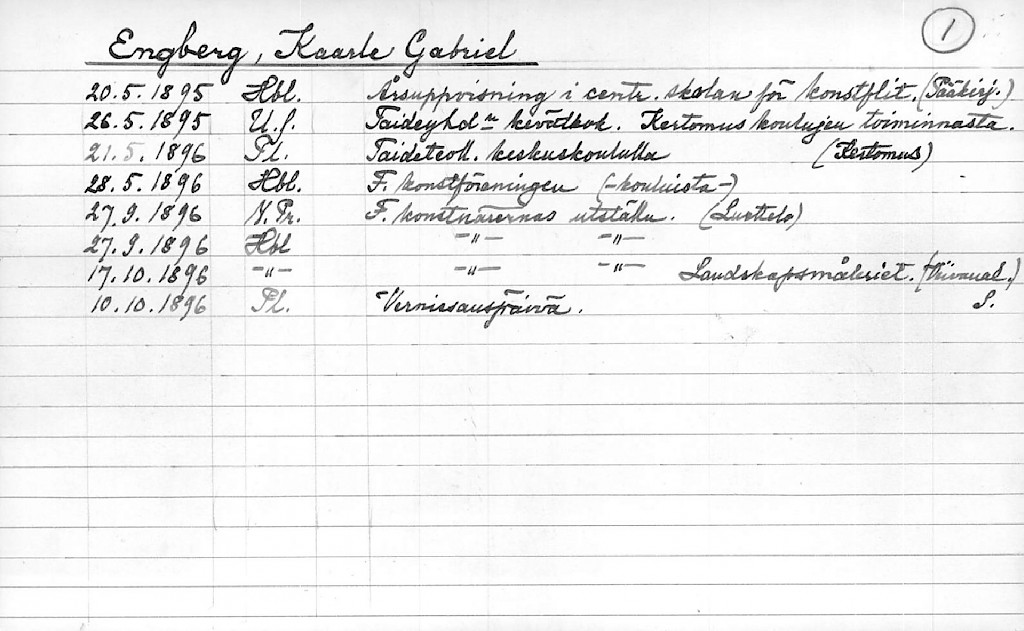 1
Engberg, Kaarle Gabriel
20.5.1895 Hbl. Årsuppvisning i centr. skolan för konstflit. (Pääkirj.)
26.5.1895 U.S. Taideyhd:n kevätkok. Kertomus koulujen toiminnasta.
21.5.1896 Pl. Taideteoll. keskuskoululla (Kertomus)
28.5.1896 Hbl. F. konstföreningen (-kouluista-)
27.9.1896 N.Pr. F. konstnärernas utställn. (Luettelo)
27.9.1896 Hbl -"- -"-
17.10.1896 -"- -"- -"- Landskapsmåleriet.
10.10.1896 Pl. Vernissauspäivä. S.